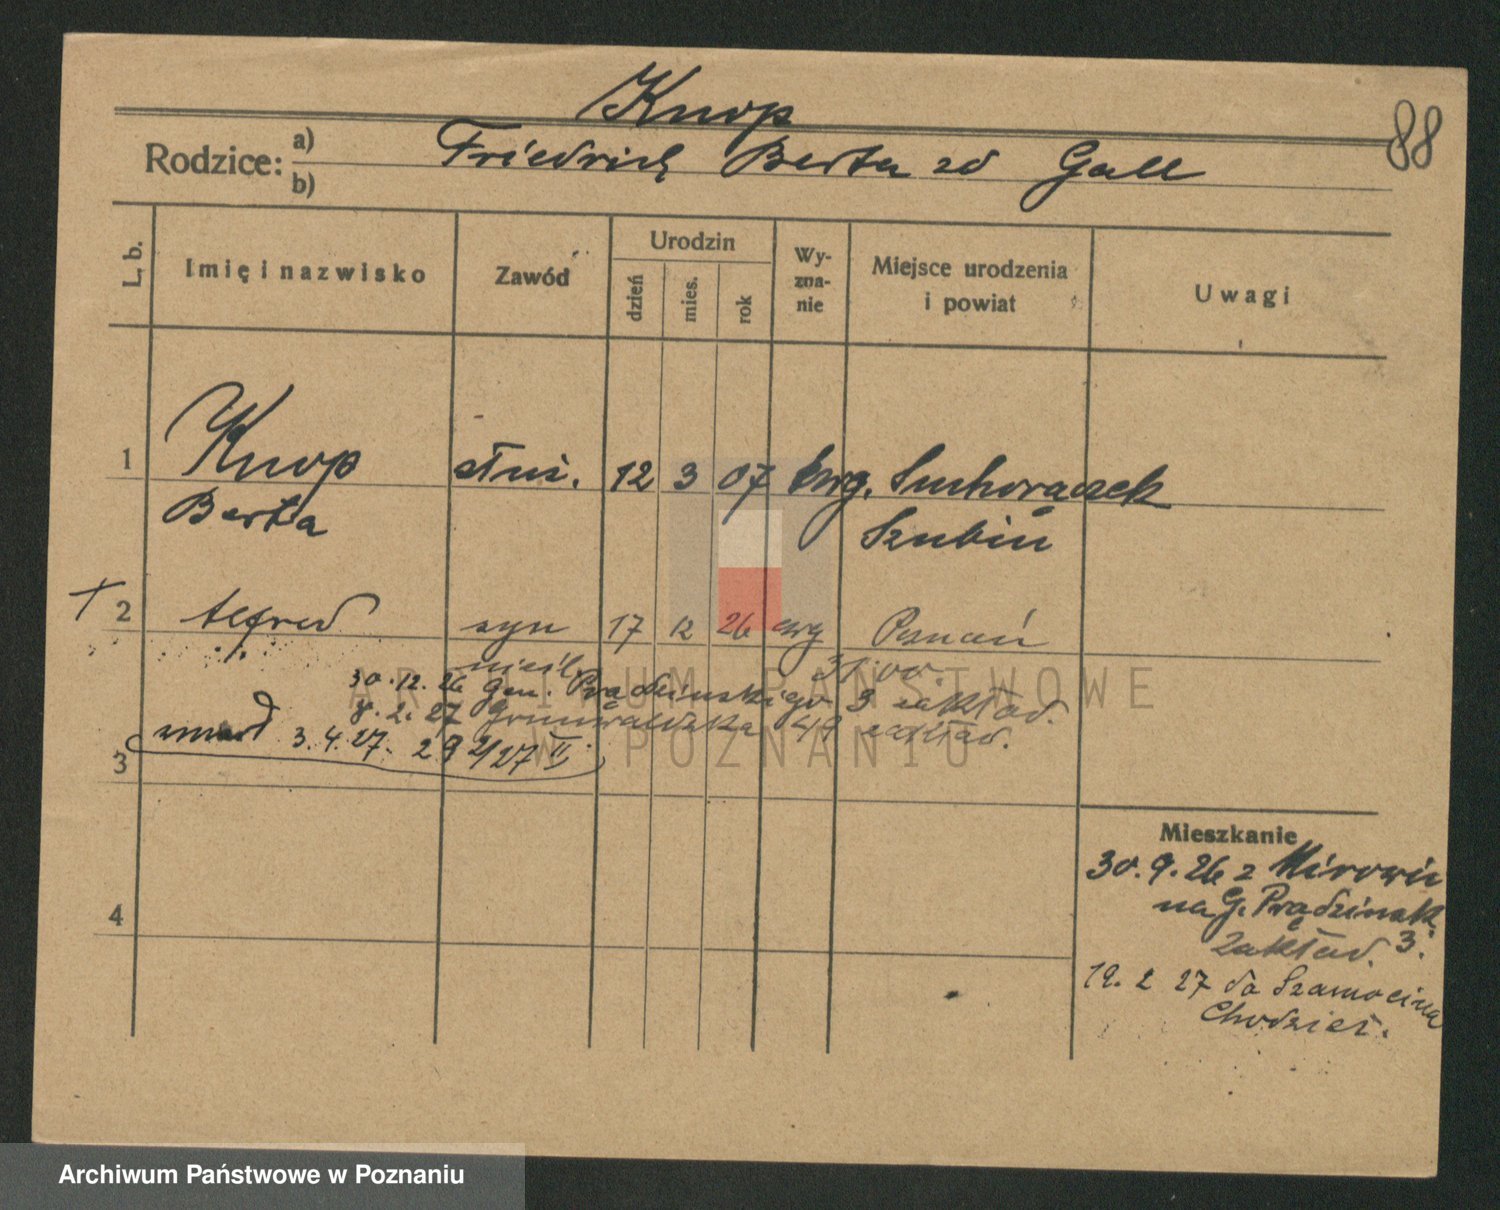 Knop
88
Rodzice: a) Friedrich Berta zd Gall
b)
L. b. Imię i nazwisko Zawód Urodzin dzień mies. rok Wy-zna-nie Miejsce urodzenia i powiat Uwagi
1 Knop służ. 12 3 07 Ewg. Suchorączek
Berta Szubin
+ 2 Alfred syn 17 12 26 ewg Poznań
nieśl.
30.12.26 Gen. Prądzińskiego 3 zakład.
8.2.27 Grunwaldzka 49 zakład.
umarł 3.4.27. 292/27 II
3
Mieszkanie
30.9.26 z
na G. Prądzińsk.
zakład. 3.
4
19.2 27 do Szamocina
Chodzież.
ARCHIWUM PAŃSTWOWE
W POZNANIU
Archiwum Państwowe w Poznaniu